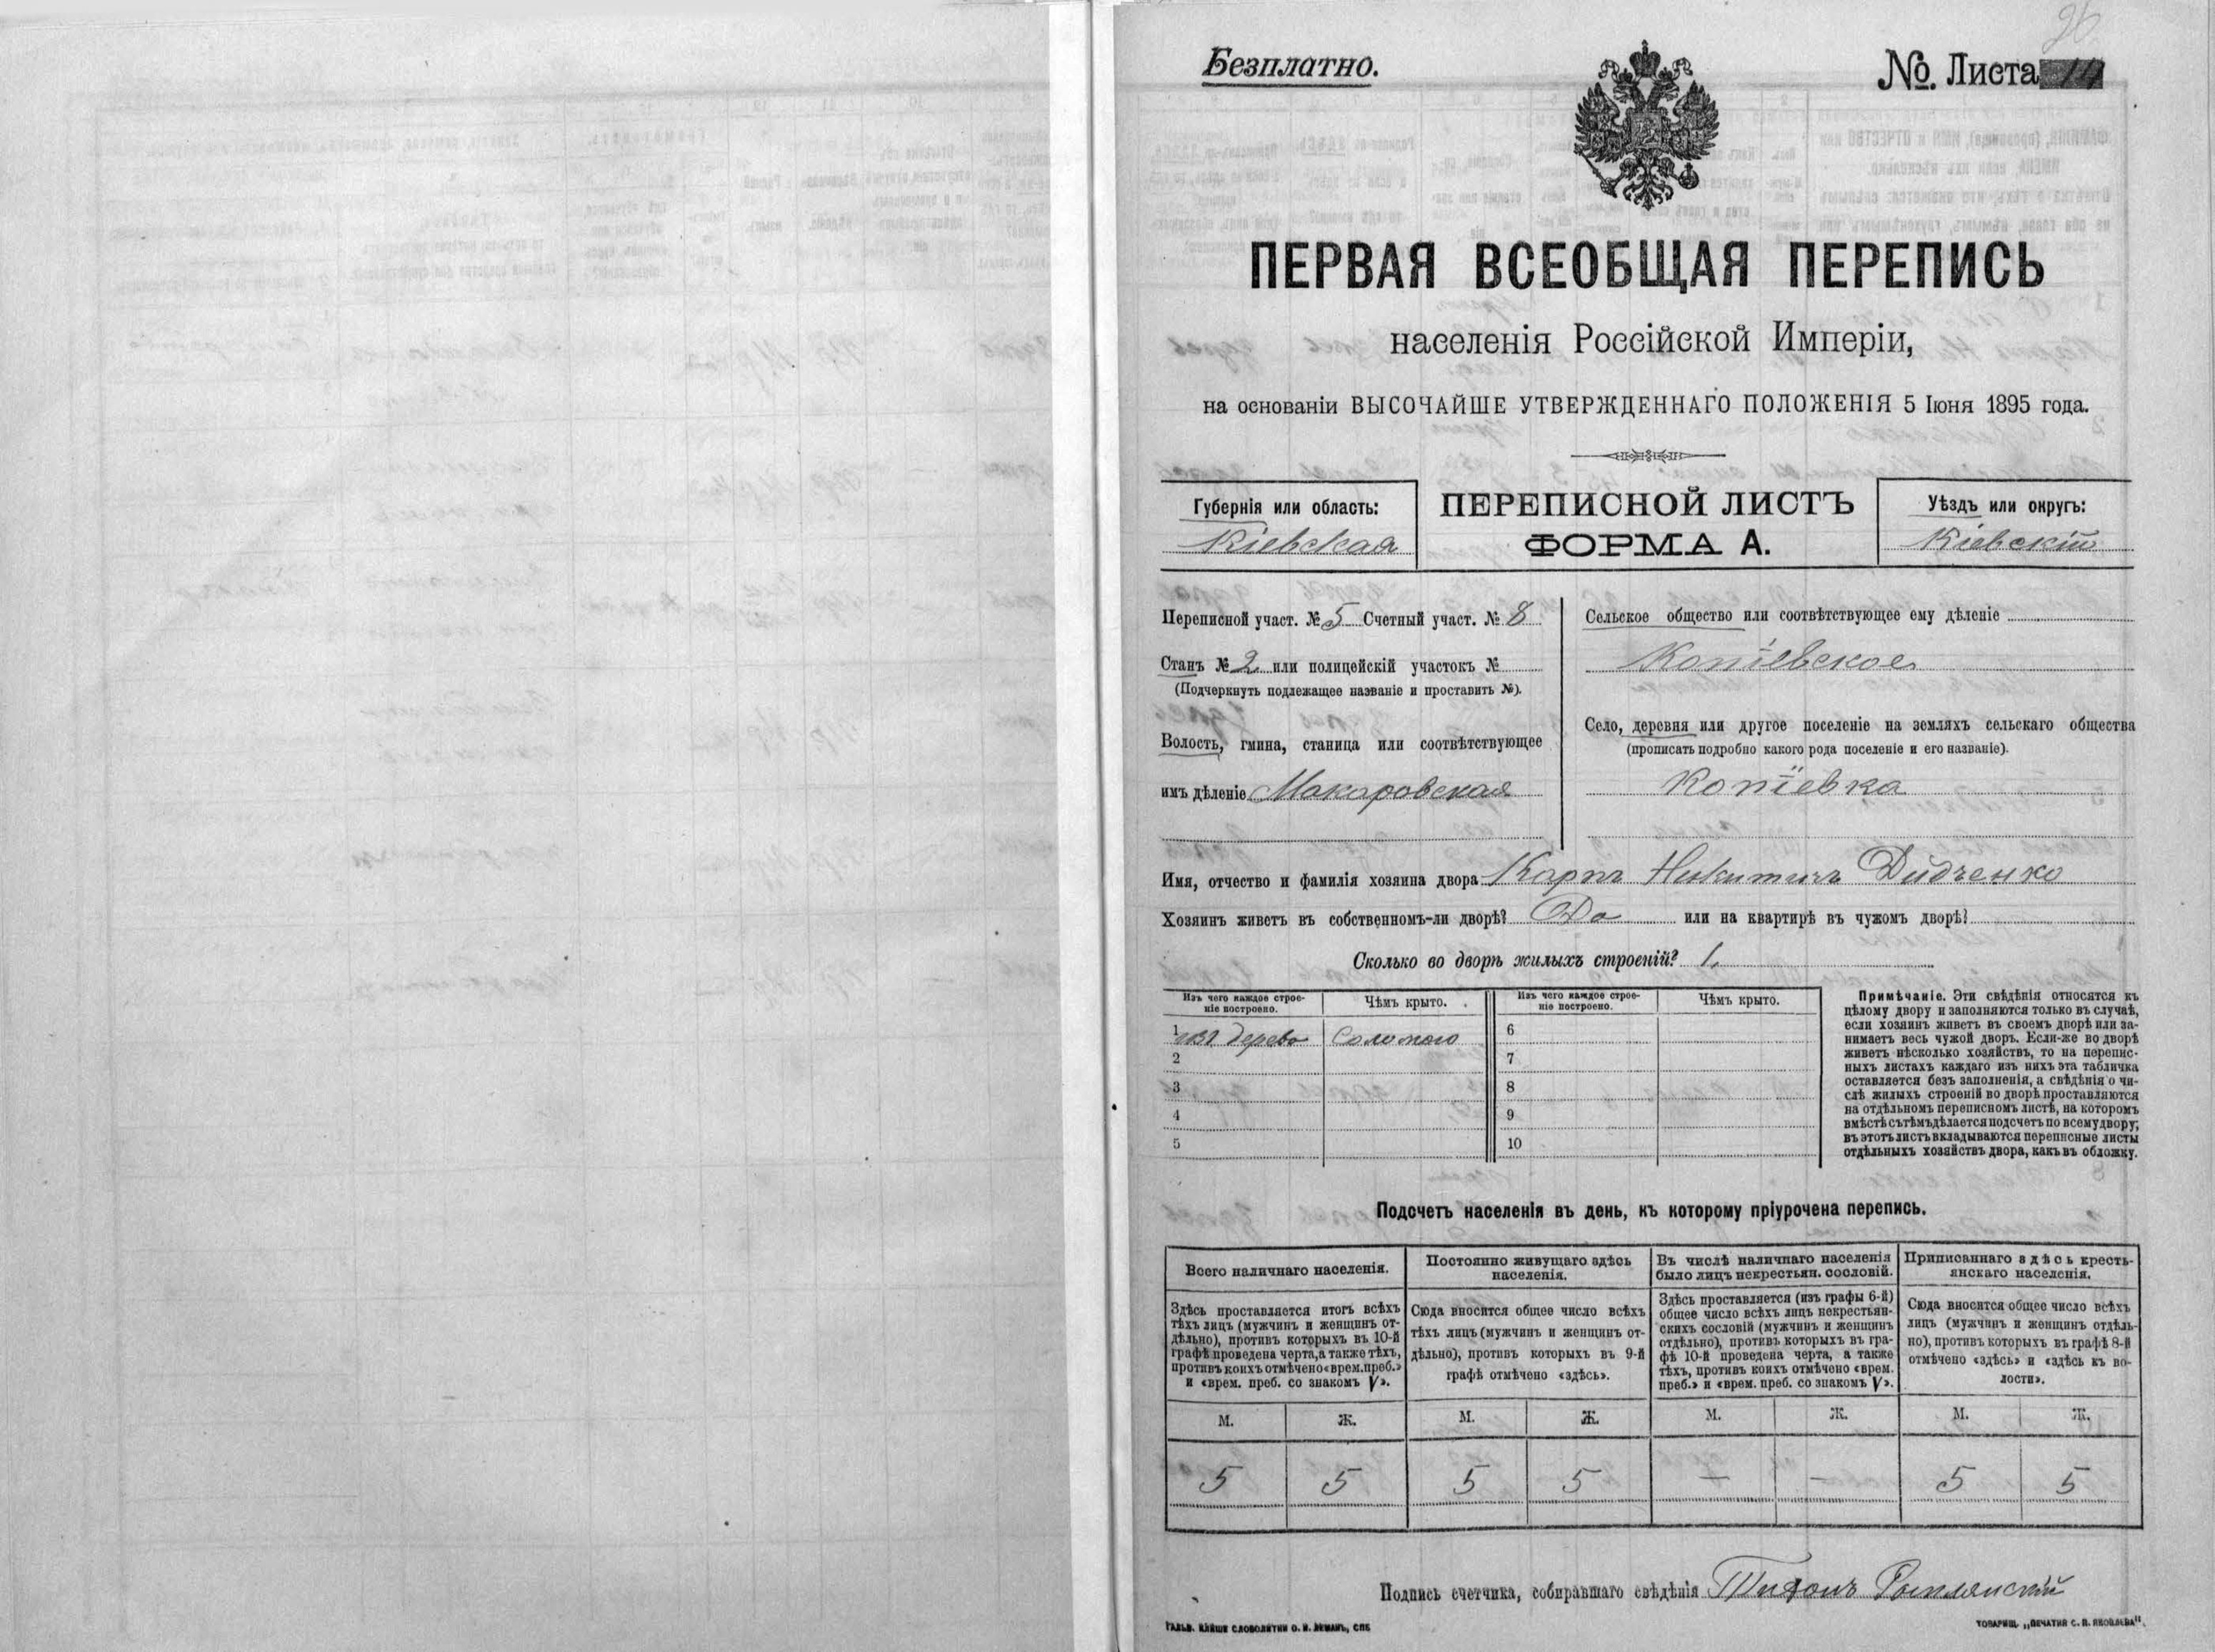 26
Безплатно.
№. Листа 14
ПЕРВАЯ ВСЕОБЩАЯ ПЕРЕПИСЬ
населенія Россійской Имперіи,
на основаніи ВЫСОЧАЙШЕ УТВЕРЖДЕННАГО ПОЛОЖЕНІЯ 5 Іюня 1895 года.
Губернія или область:
Кіевская
ПЕРЕПИСНОЙ ЛИСТЪ
ФОРМА А.
Уѣздъ или округъ:
Кіевскій
Переписной участ. № 5 Счетный участ. № 8
Станъ № 2 или полицейскій участокъ №
(Подчеркнуть подлежащее названіе и проставить №).
Волость, гмина, станица или соотвѣтствующее
имъ дѣленіе Макаровская
Сельское общество или соотвѣтствующее ему дѣленіе
Копіевское
Село, деревня или другое поселеніе на земляхъ сельскаго общества
(прописать подробно какого рода поселеніе и его названіе).
Копіевка
Имя, отчество и фамилія хозяина двора Карпъ Никитичъ Дидченко
Хозяинъ живетъ въ собственномъ-ли дворѣ? Да или на квартирѣ въ чужомъ дворѣ?
Сколько во дворѣ жилыхъ строеній? 1
Изъ чего каждое строе-
ніе построено.
Чѣмъ крыто.
Изъ чего каждое строе-
ніе построено.
Чѣмъ крыто.
1 изъ дерева Соломою
2
3
4
5
6
7
8
9
10
Примѣчаніе. Эти свѣдѣнія относятся къ
цѣлому двору и заполняются только въ случаѣ,
если хозяинъ живетъ въ своемъ дворѣ или за-
нимаетъ весь чужой дворъ. Если-же во дворѣ
живетъ нѣсколько хозяйствъ, то на перепис-
ныхъ листахъ каждаго изъ нихъ эта табличка
оставляется безъ заполненія, а свѣдѣнія о чи-
слѣ жилыхъ строеній во дворѣ проставляются
на отдѣльномъ переписномъ листѣ, на которомъ
вмѣстѣ съ тѣмъ дѣлается подсчетъ по всему двору;
въ этотъ листъ вкладываются переписные листы
отдѣльныхъ хозяйствъ двора, какъ въ обложку.
Подсчетъ населенія въ день, къ которому пріурочена перепись.
Всего наличнаго населенія.
Постоянно живущаго здѣсь
населенія.
Въ числѣ наличнаго населенія
было лицъ некрестьян. сословій.
Приписаннаго здѣсь кресть-
янскаго населенія.
Здѣсь проставляется итогъ всѣхъ
тѣхъ лицъ (мужчинъ и женщинъ от-
дѣльно), противъ которыхъ въ 10-й
графѣ проведена черта, а также тѣхъ,
противъ коихъ отмѣчено «врем. преб.»
и «врем. преб. со знакомъ V».
Сюда вносится общее число всѣхъ
тѣхъ лицъ (мужчинъ и женщинъ от-
дѣльно), противъ которыхъ въ 9-й
графѣ отмѣчено «здѣсь».
Здѣсь проставляется (изъ графы 6-й)
общее число всѣхъ лицъ некрестьян-
скихъ сословій (мужчинъ и женщинъ
отдѣльно), противъ которыхъ въ гра-
фѣ 10-й проведена черта, а также
тѣхъ, противъ коихъ отмѣчено «врем.
преб.» и «врем. преб. со знакомъ V».
Сюда вносится общее число всѣхъ
лицъ (мужчинъ и женщинъ отдѣль-
но), противъ которыхъ въ графѣ 8-й
отмѣчено «здѣсь» и «здѣсь къ во-
лости».
М. Ж. М. Ж. М. Ж. М. Ж.
5 5 5 5 — — 5 5
Подпись счетчика, собиравшаго свѣдѣнія Тихонъ
ГАЛЬВ. КЛИШЕ СЛОВОЛИТНИ О. И. ЛЕМАНЪ, СПБ
ТОВАРИЩ. „ПЕЧАТНЯ С. П. ЯКОВЛЕВА".